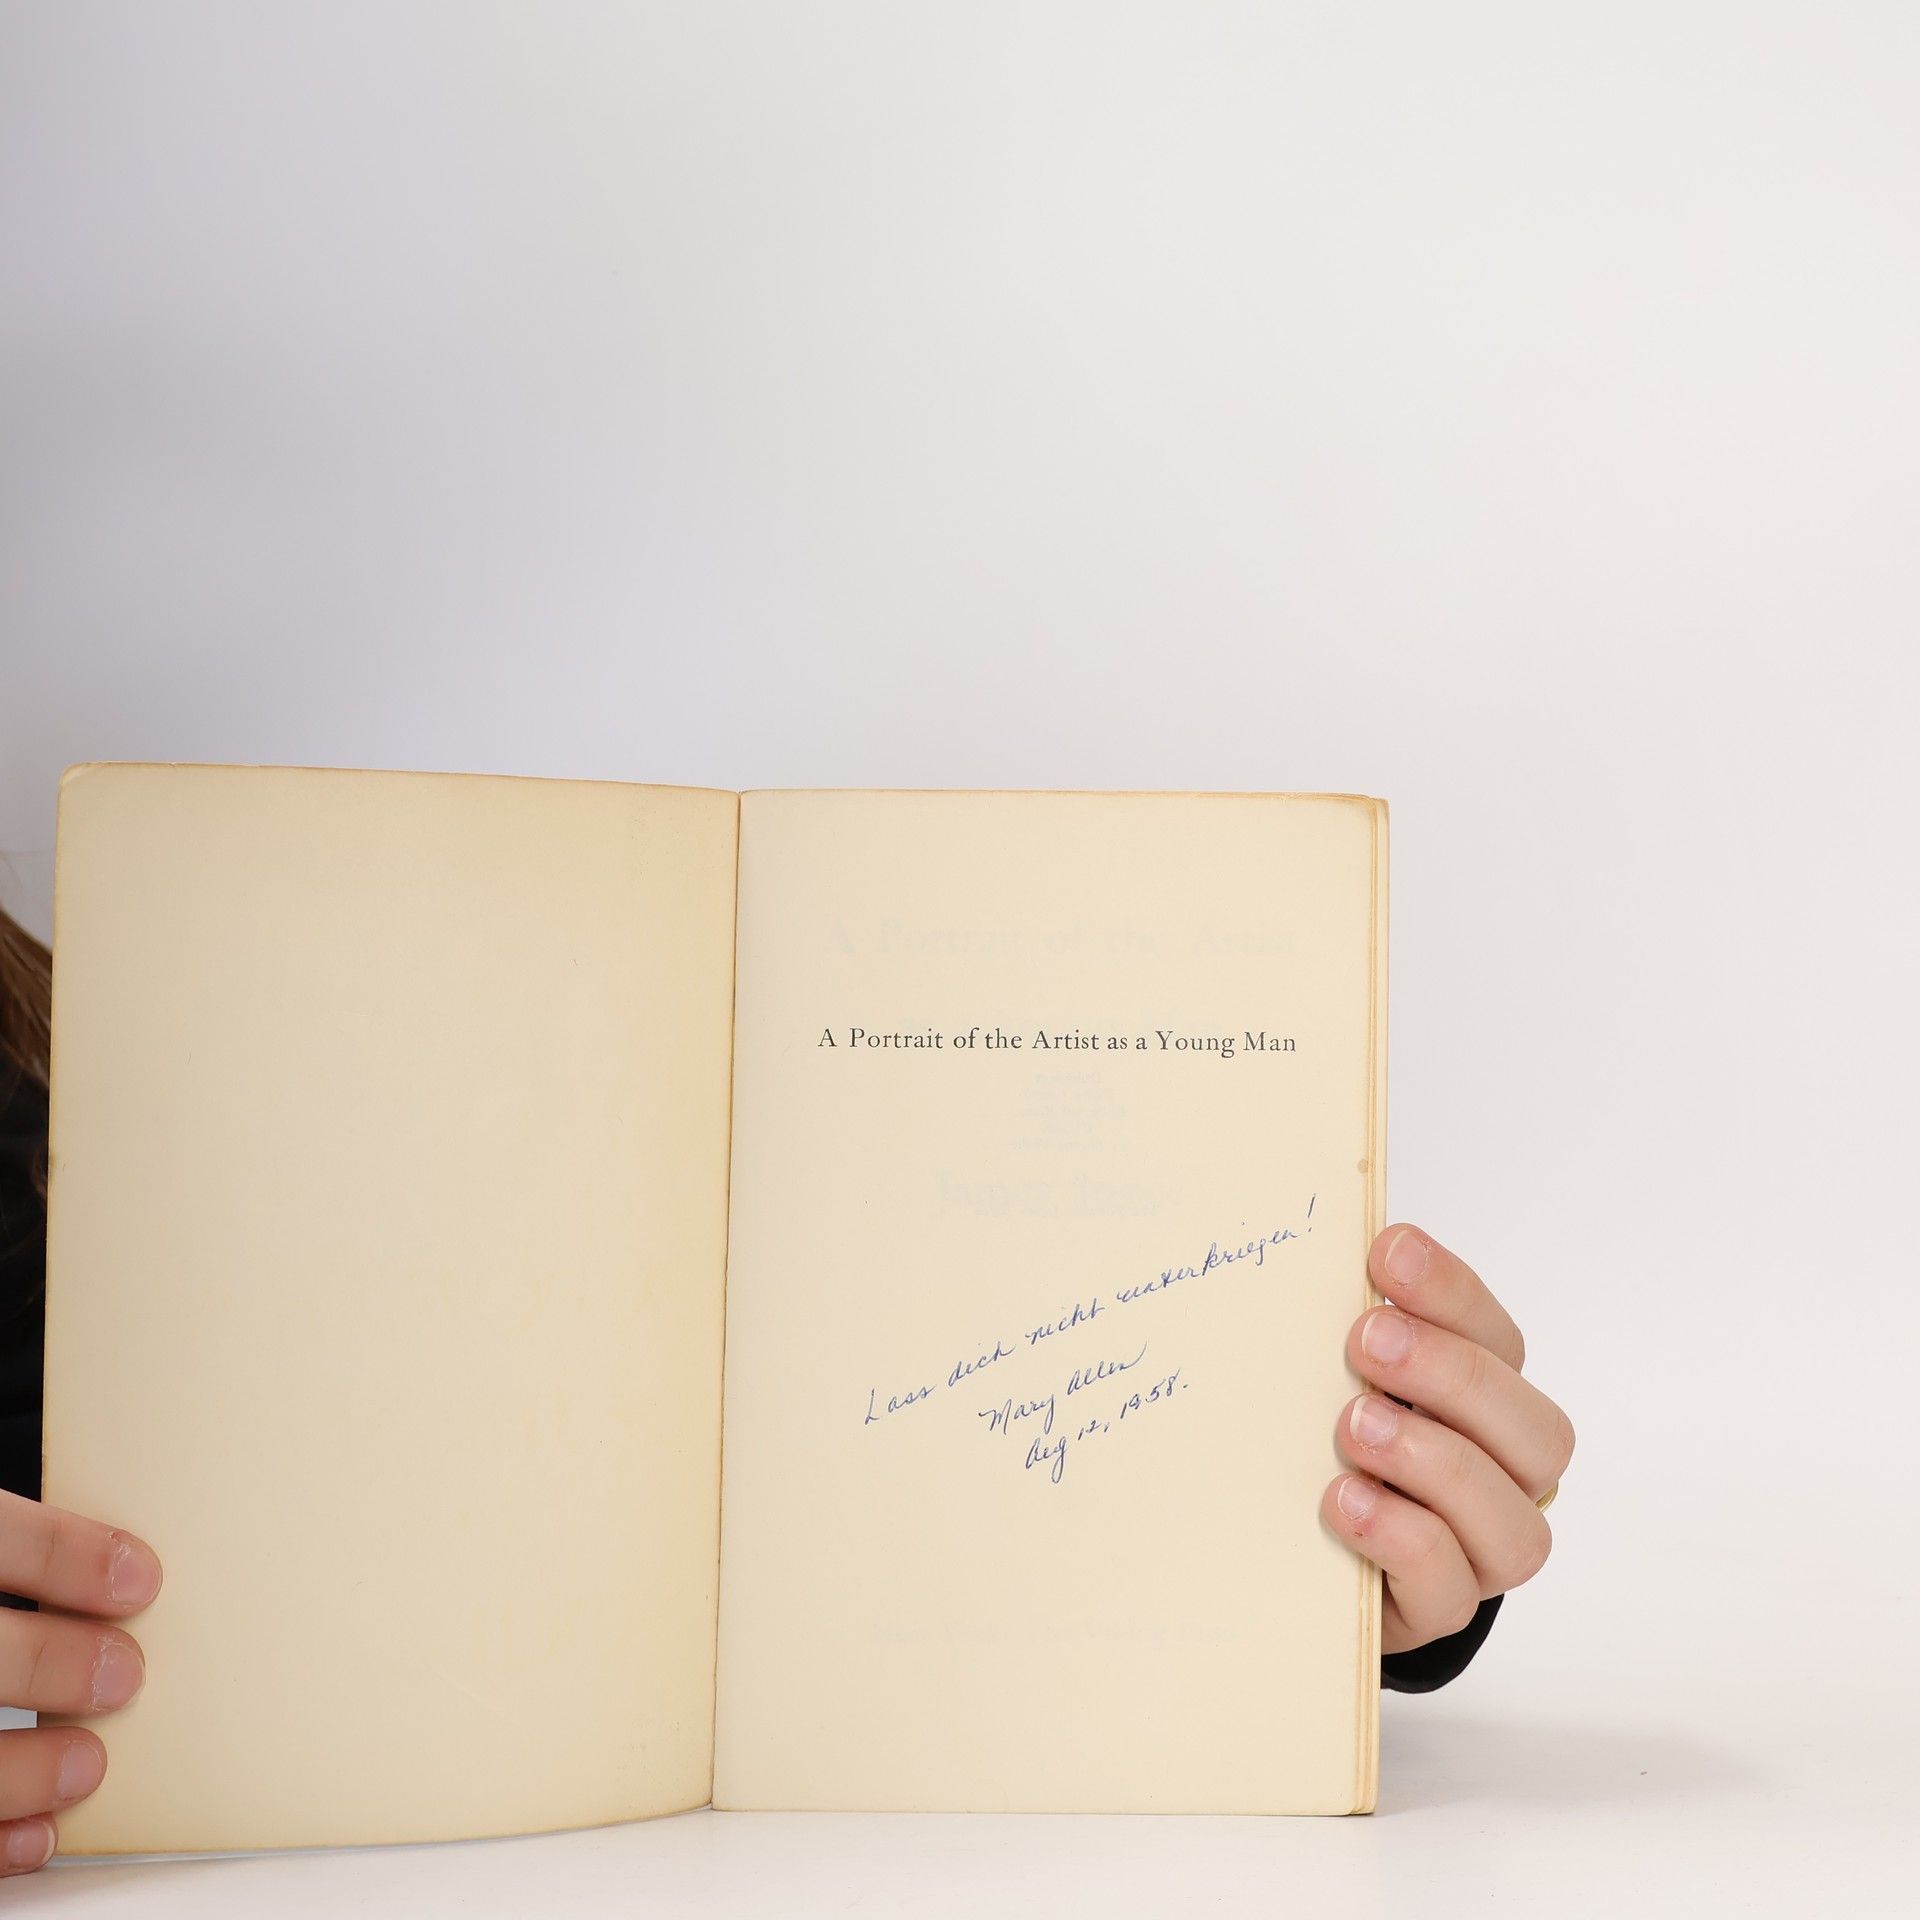 A Portrait of the Artist as a Young Man
Lass dich nicht unterkriegen!
Mary Allen
Aug 12, 1958.